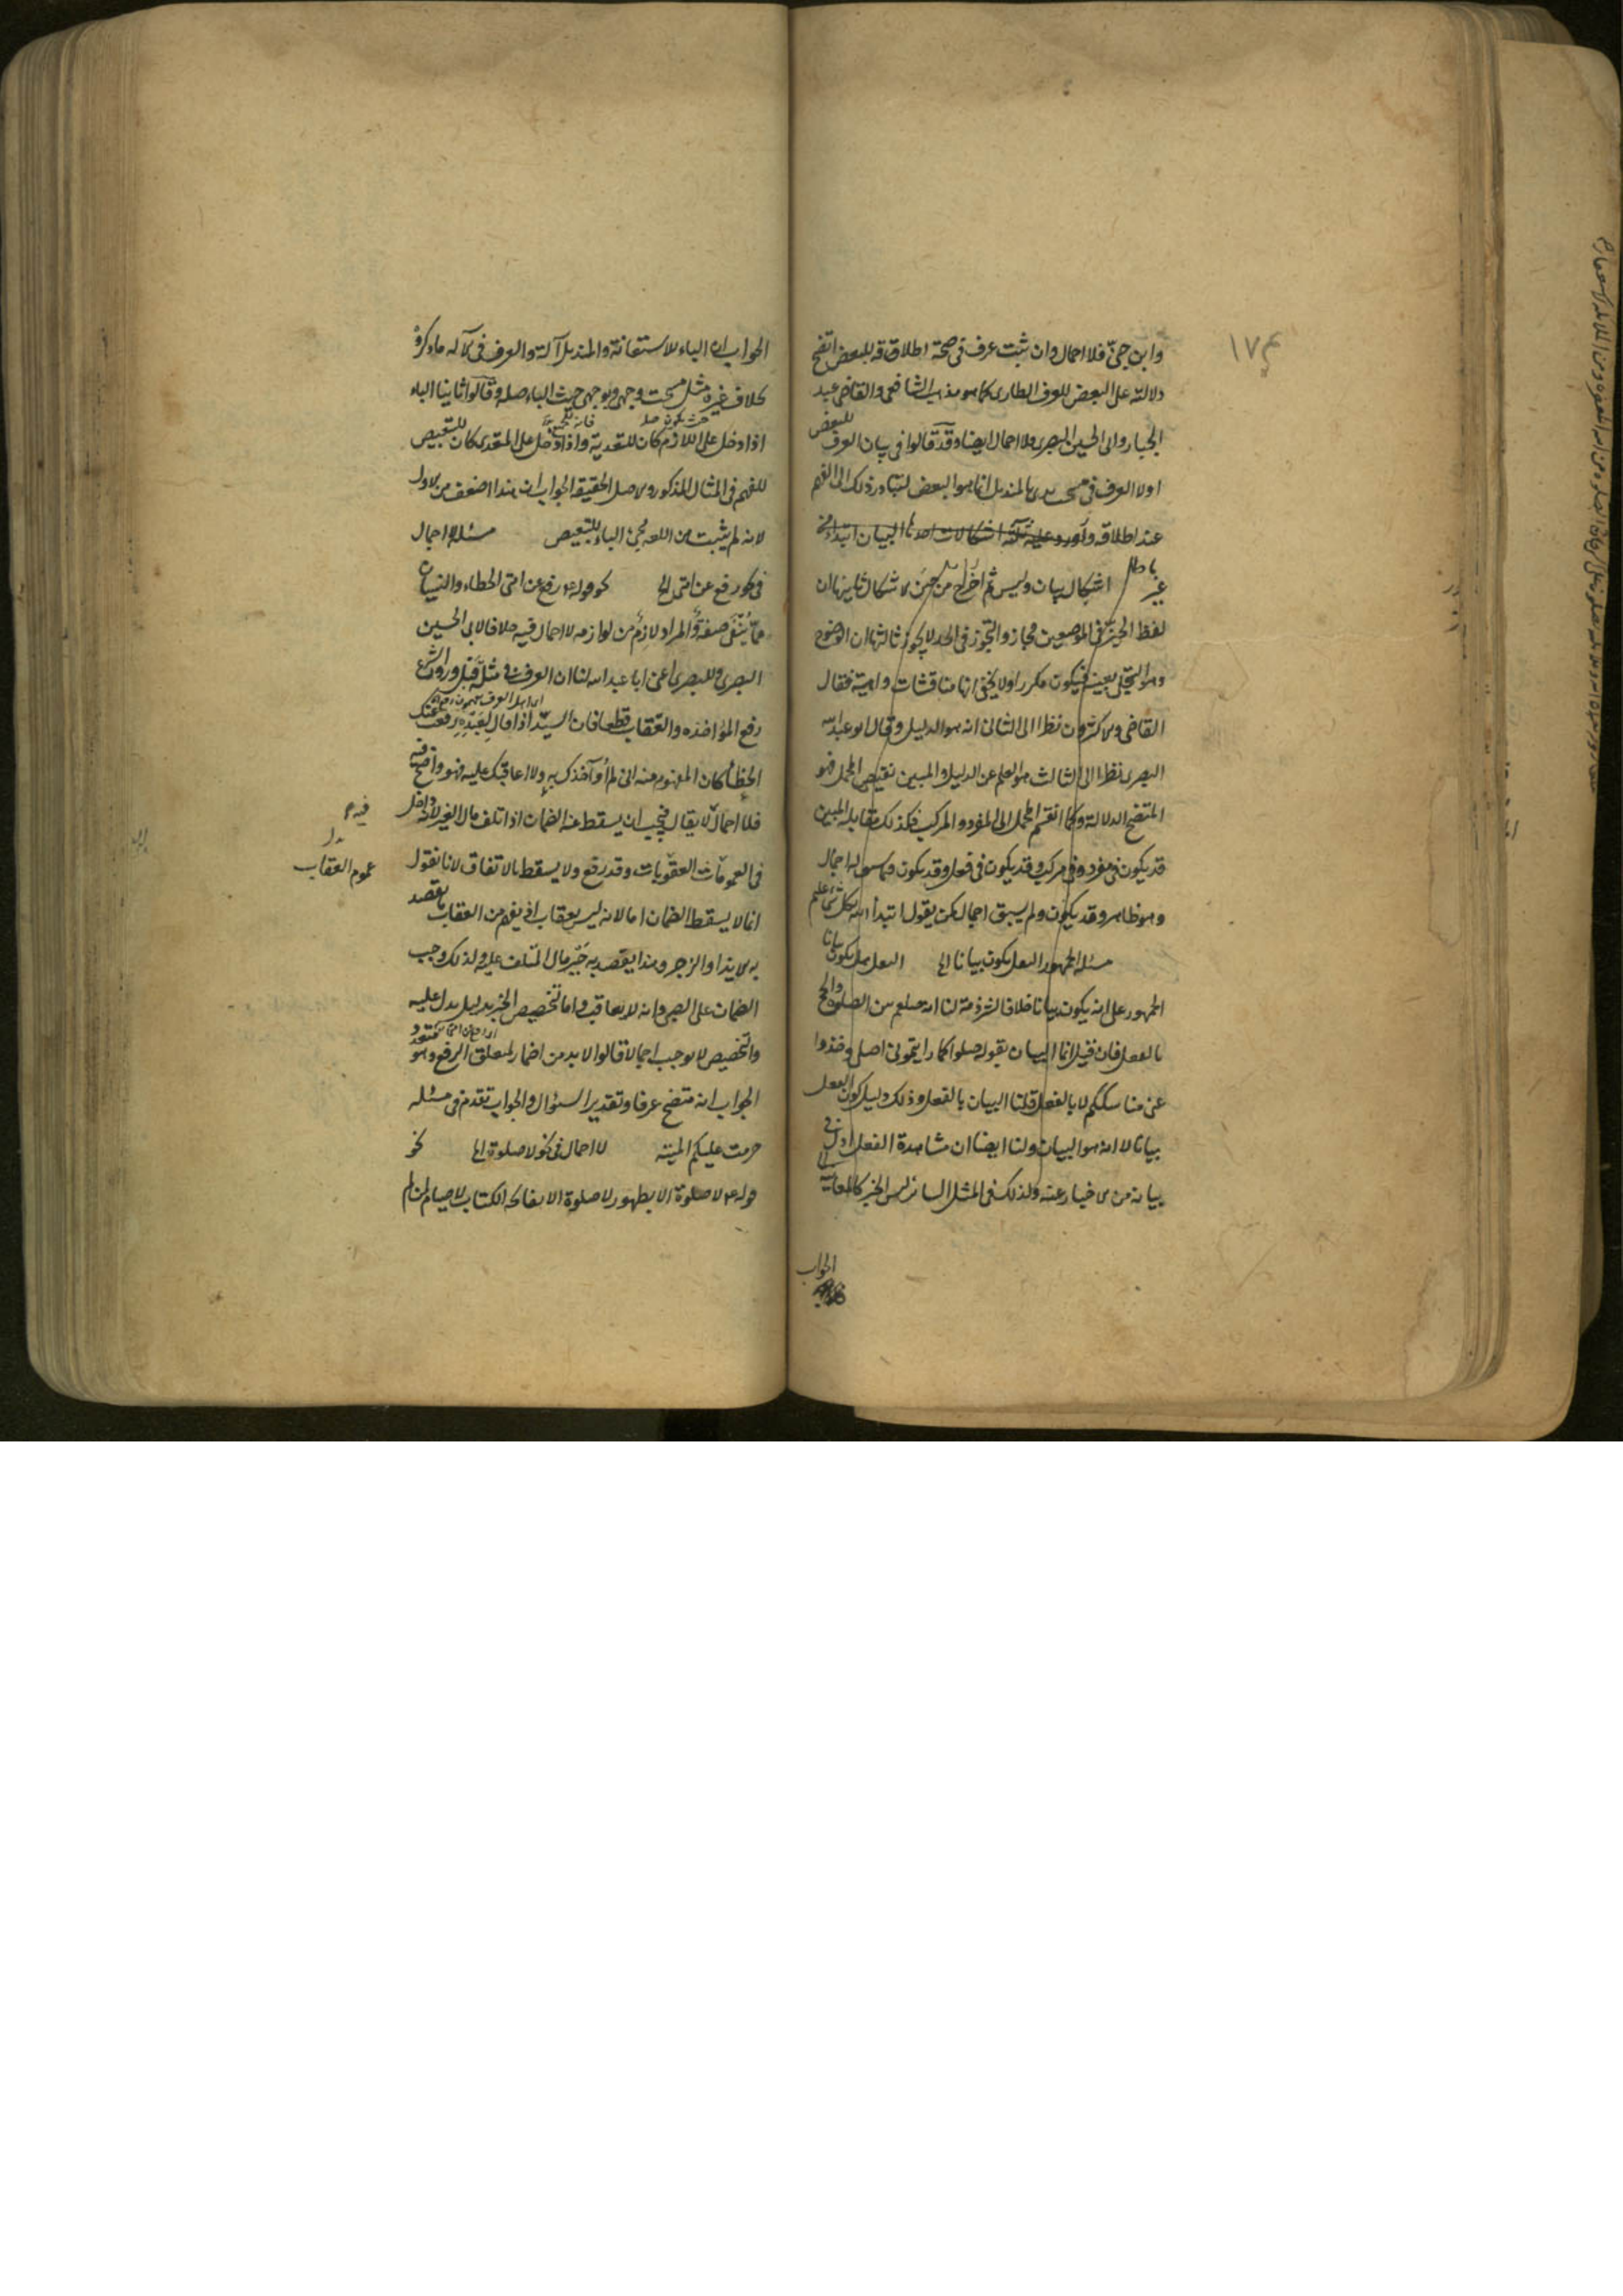 ١٧٤
وابن جنى فلا اجمال وان ثبت عرف فى صحة اطلاقه للبعض اتضح
دلالته على البعض للعرف الطارى كما هو مذهب الشافعى والقاضى عبد
الجبار وابى الحسين البصرى فلا اجمال ايضا وقد قالوا فى بيان العرف للبعض
اولا العرف فى مسحت يدى بالمنديل انما هو البعض لتبادر ذلك الى الفهم
عند اطلاقه واورد عليه ثلثة اشكالات احدها البيان ابتداء من
غير اشكال بيان وليس ثم اخراج من حيز الاشكال ثانيها ان
لفظ الحيز فى الموضعين مجاز والتجوز فى الحد لا يجوز ثالثها ان الوضوح
وهو التجلى بعينه فيكون مكررا ولا يخفى انها مناقشات واهية فقال
القاضى والاكثرون نظرا الى الثانى انه هو الدليل وقال ابو عبد الله
البصرى نظرا الى الثالث هو العلم عن الدليل والمبين نقيض المجمل فهو
المتضح الدلالة وكما انقسم المجمل الى المفرد والمركب فكذلك مقابله المبين
قد يكون فى مفرد وفى مركب وقد يكون فى فعل وقد يكون فيما سبق له اجمال
وهو ظاهر وقد يكون ولم يسبق اجمال كمن يقول ابتداء الله بكل شئ عليم
مسئلة الجمهور الفعل يكون بيانا الخ الفعل هل يكون بيانا
الجمهور على انه يكون بيانا خلافا لشرذمة لنا انه صلعم بين الصلوة والحج
بالفعل فان قيل انما البيان بقوله صلوا كما رايتمونى اصلى وخذوا
عنى مناسككم لا بالفعل قلنا البيان بالفعل وذلك دليل كون الفعل
بيانا لا انه هو البيان ولنا ايضا ان مشاهدة الفعل ادل فى
بيانه من الاخبار عنه ولذلك فى المثل السائر ليس الخبر كالمعاينة
الجواب
الجواب ان الباء للاستعانة والمنديل آلة والعرف فى الآلة ما ذكر
بخلاف غيره مثل مسحت وجهى وبوجهى حيث الباء صلة وقالوا ثانيا الباء
اذا دخل على اللازم كان للتعدية واذا دخل على المتعدى كان للتبعيض
للفهم فى المثال المذكور والاصل الحقيقة الجواب ان هذا اضعف من الاول
لانه لم يثبت من اللغة مجئ الباء للتبعيض مسئلة لا اجمال
فى نحو رفع عن امتى الخ نحو قوله ع رفع عن امتى الخطاء والنسيان
مما ينفى صفة والمراد لازم من لوازمه لا اجمال فيه خلافا لابى الحسين
البصرى وللبصرى اعنى ابا عبد الله لنا ان العرف فى مثله قبل ورود الشرع
رفع المؤاخذة والعقاب قطعا فان السيد اذا قال لعبده رفعت عنك
الخطأ كان المفهوم منه انى لم أوآخذك به ولا اعاقبك عليه فهو واضح فيه
فلا اجمال لا يقال فيجب ان يسقط عنه الضمان اذا اتلف مال الغير لانه داخل
فى العمومات العقوبات وقد رفع ولا يسقط بالاتفاق لانا نقول
انما لا يسقط الضمان اما لانه ليس بعقاب اذ يفهم من العقاب ما يقصد
به الايذاء والزجر وهذا يقصد به جبر مال المتلف عليه ولذلك وجب
الضمان على الصبى وانه لا يعاقب واما تخصيص الخبر بدليل يدل عليه
والتخصيص لا يوجب اجمالا قالوا لابد من اضمار لمتعلق الرفع وهو متعدد
الجواب انه متضح عرفا وتقدير السؤال والجواب تقدم فى مسئلة
حرمت عليكم الميتة لا اجمال فى نحو لا صلوة الخ نحو
قوله ع لا صلوة الا بطهور لا صلوة الا بفاتحة الكتاب لا صيام لمن لم
عموم العقاب